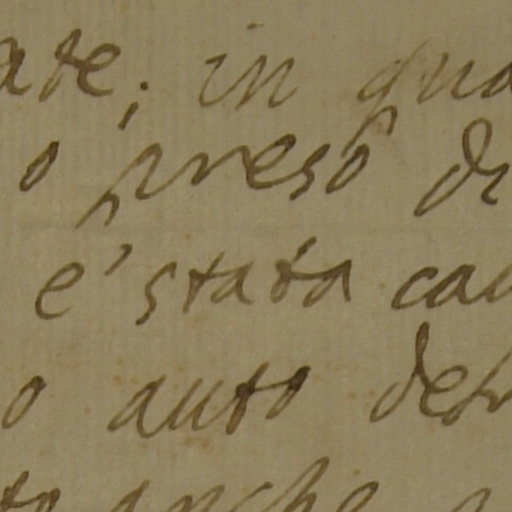 ate; in qua
o preso di
è stata cau
o auto detr
to anche